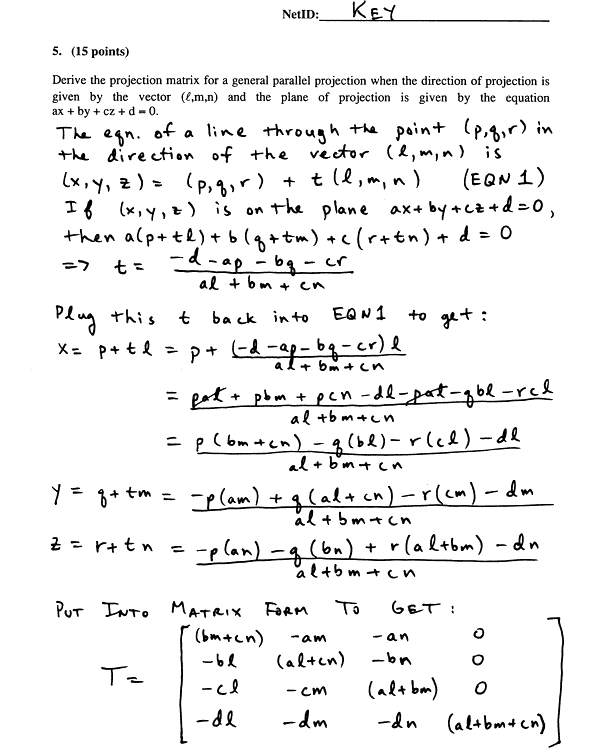 NetID: KEY
5. (15 points)
Derive the projection matrix for a general parallel projection when the direction of projection is
given by the vector (ℓ,m,n) and the plane of projection is given by the equation
ax + by + cz + d = 0.
The eqn. of a line through the point (p,q,r) in
the direction of the vector (l,m,n) is
(x,y,z) = (p,q,r) + t(l,m,n) (EQN 1)
If (x,y,z) is on the plane ax+by+cz+d=0,
then a(p+tl)+b(q+tm)+c(r+tn)+d=0
=> t = -d-ap-bq-cr
al+bm+cn
Plug this t back into EQN1 to get:
x = p+tl = p+ (-d-ap-bq-cr)l
al+bm+cn
= pal + pbm + pcn - dl - pal - qbl - rcl
al+bm+cn
= p(bm+cn) - q(bl) - r(cl) - dl
al+bm+cn
y = q+tm = -p(am) + q(al+cn) - r(cm) - dm
al+bm+cn
z = r+tn = -p(an) - q(bn) + r(al+bm) - dn
al+bm+cn
PUT INTO MATRIX FORM TO GET:
(bm+cn) -am -an 0
-bl (al+cn) -bn 0
T=
-cl -cm (al+bm) 0
-dl -dm -dn (al+bm+cn)